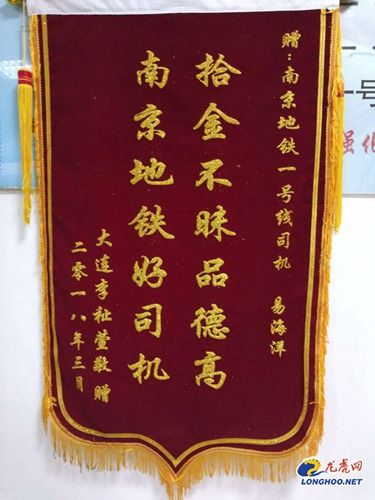 赠：南京地铁一号线司机 易海洋
拾金不昧品德高
南京地铁好司机
大连李祉萱敬赠
二零一八年三月
一号
强化
龙虎网
LONGHOO.NET